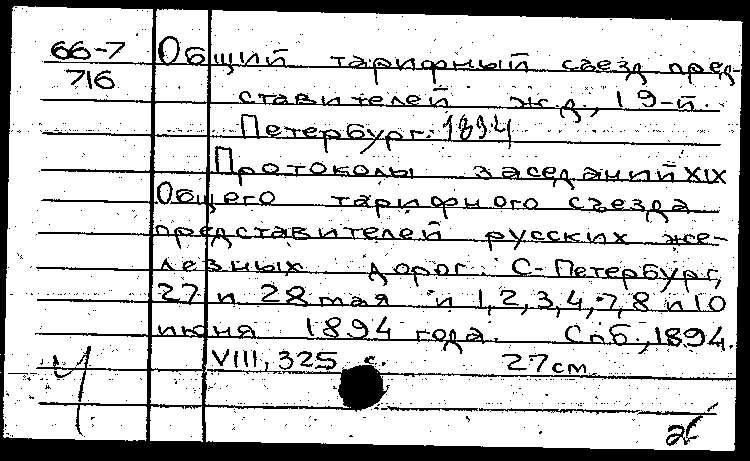 66-7 Общий тарифный съезд пред-
716
ставителей ж.д., 19-й.
Петербург. 1894
Протоколы заседаний XIX
Общего тарифного съезда
представителей русских же-
лезных дорог. С-Петербург,
27 и 28 мая и 1, 2, 3, 4, 7, 8 и 10
июня 1894 года. Спб., 1894.
VIII, 325 с. 27см